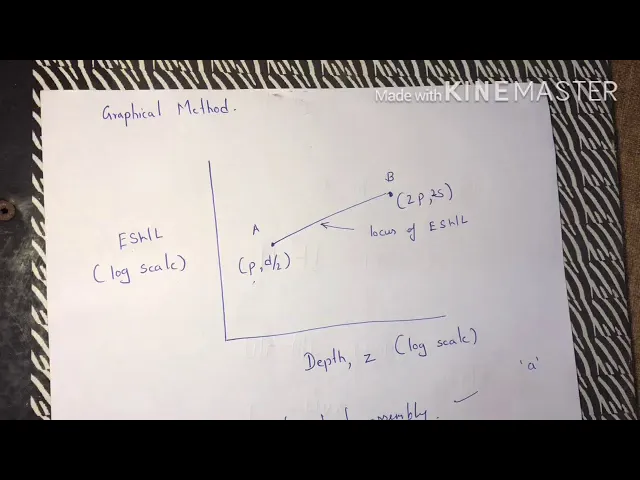 Made with KINEMASTER
Graphical Method.
B
(2P, 2S)
A
ESWL
(log scale)
locus of ESWL
(P, d/2)
Depth, z (log scale)
'a'
assembly.